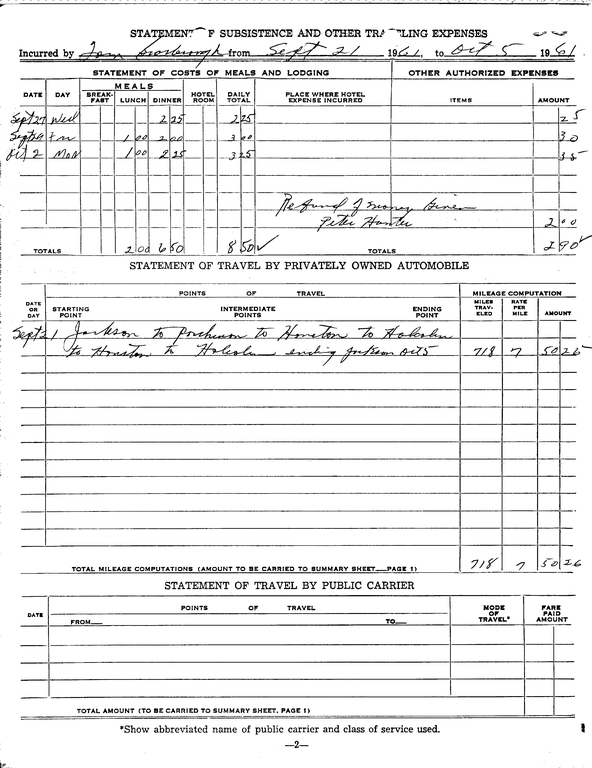 STATEMENT F SUBSISTENCE AND OTHER TRA LING EXPENSES
Incurred by Tom Scarbrough from Sept 21 1961, to Oct 5 1961
STATEMENT OF COSTS OF MEALS AND LODGING OTHER AUTHORIZED EXPENSES
DATE DAY MEALS HOTEL ROOM DAILY TOTAL PLACE WHERE HOTEL EXPENSE INCURRED ITEMS AMOUNT
BREAK-FAST LUNCH DINNER
Sept 27 Wed 2 25 2 25 25
Sept 29 Fri 1 00 2 00 3 00 30
Oct 2 Mon 1 00 2 25 3 25 35
Refund of money given
Peter Hunter 2 00
TOTALS 2 00 6 50 8 50 TOTALS 2 90
STATEMENT OF TRAVEL BY PRIVATELY OWNED AUTOMOBILE
POINTS OF TRAVEL MILEAGE COMPUTATION
DATE OR DAY STARTING POINT INTERMEDIATE POINTS ENDING POINT MILES TRAV-ELED RATE PER MILE AMOUNT
Sept 21 Jackson to to Houston to
to Houston to ending Jackson Oct 5 718 7 50 26
TOTAL MILEAGE COMPUTATIONS (AMOUNT TO BE CARRIED TO SUMMARY SHEET—PAGE 1) 718 7 50 26
STATEMENT OF TRAVEL BY PUBLIC CARRIER
DATE POINTS OF TRAVEL MODE OF TRAVEL* FARE PAID AMOUNT
FROM— TO—
TOTAL AMOUNT (TO BE CARRIED TO SUMMARY SHEET, PAGE 1)
*Show abbreviated name of public carrier and class of service used.
—2—